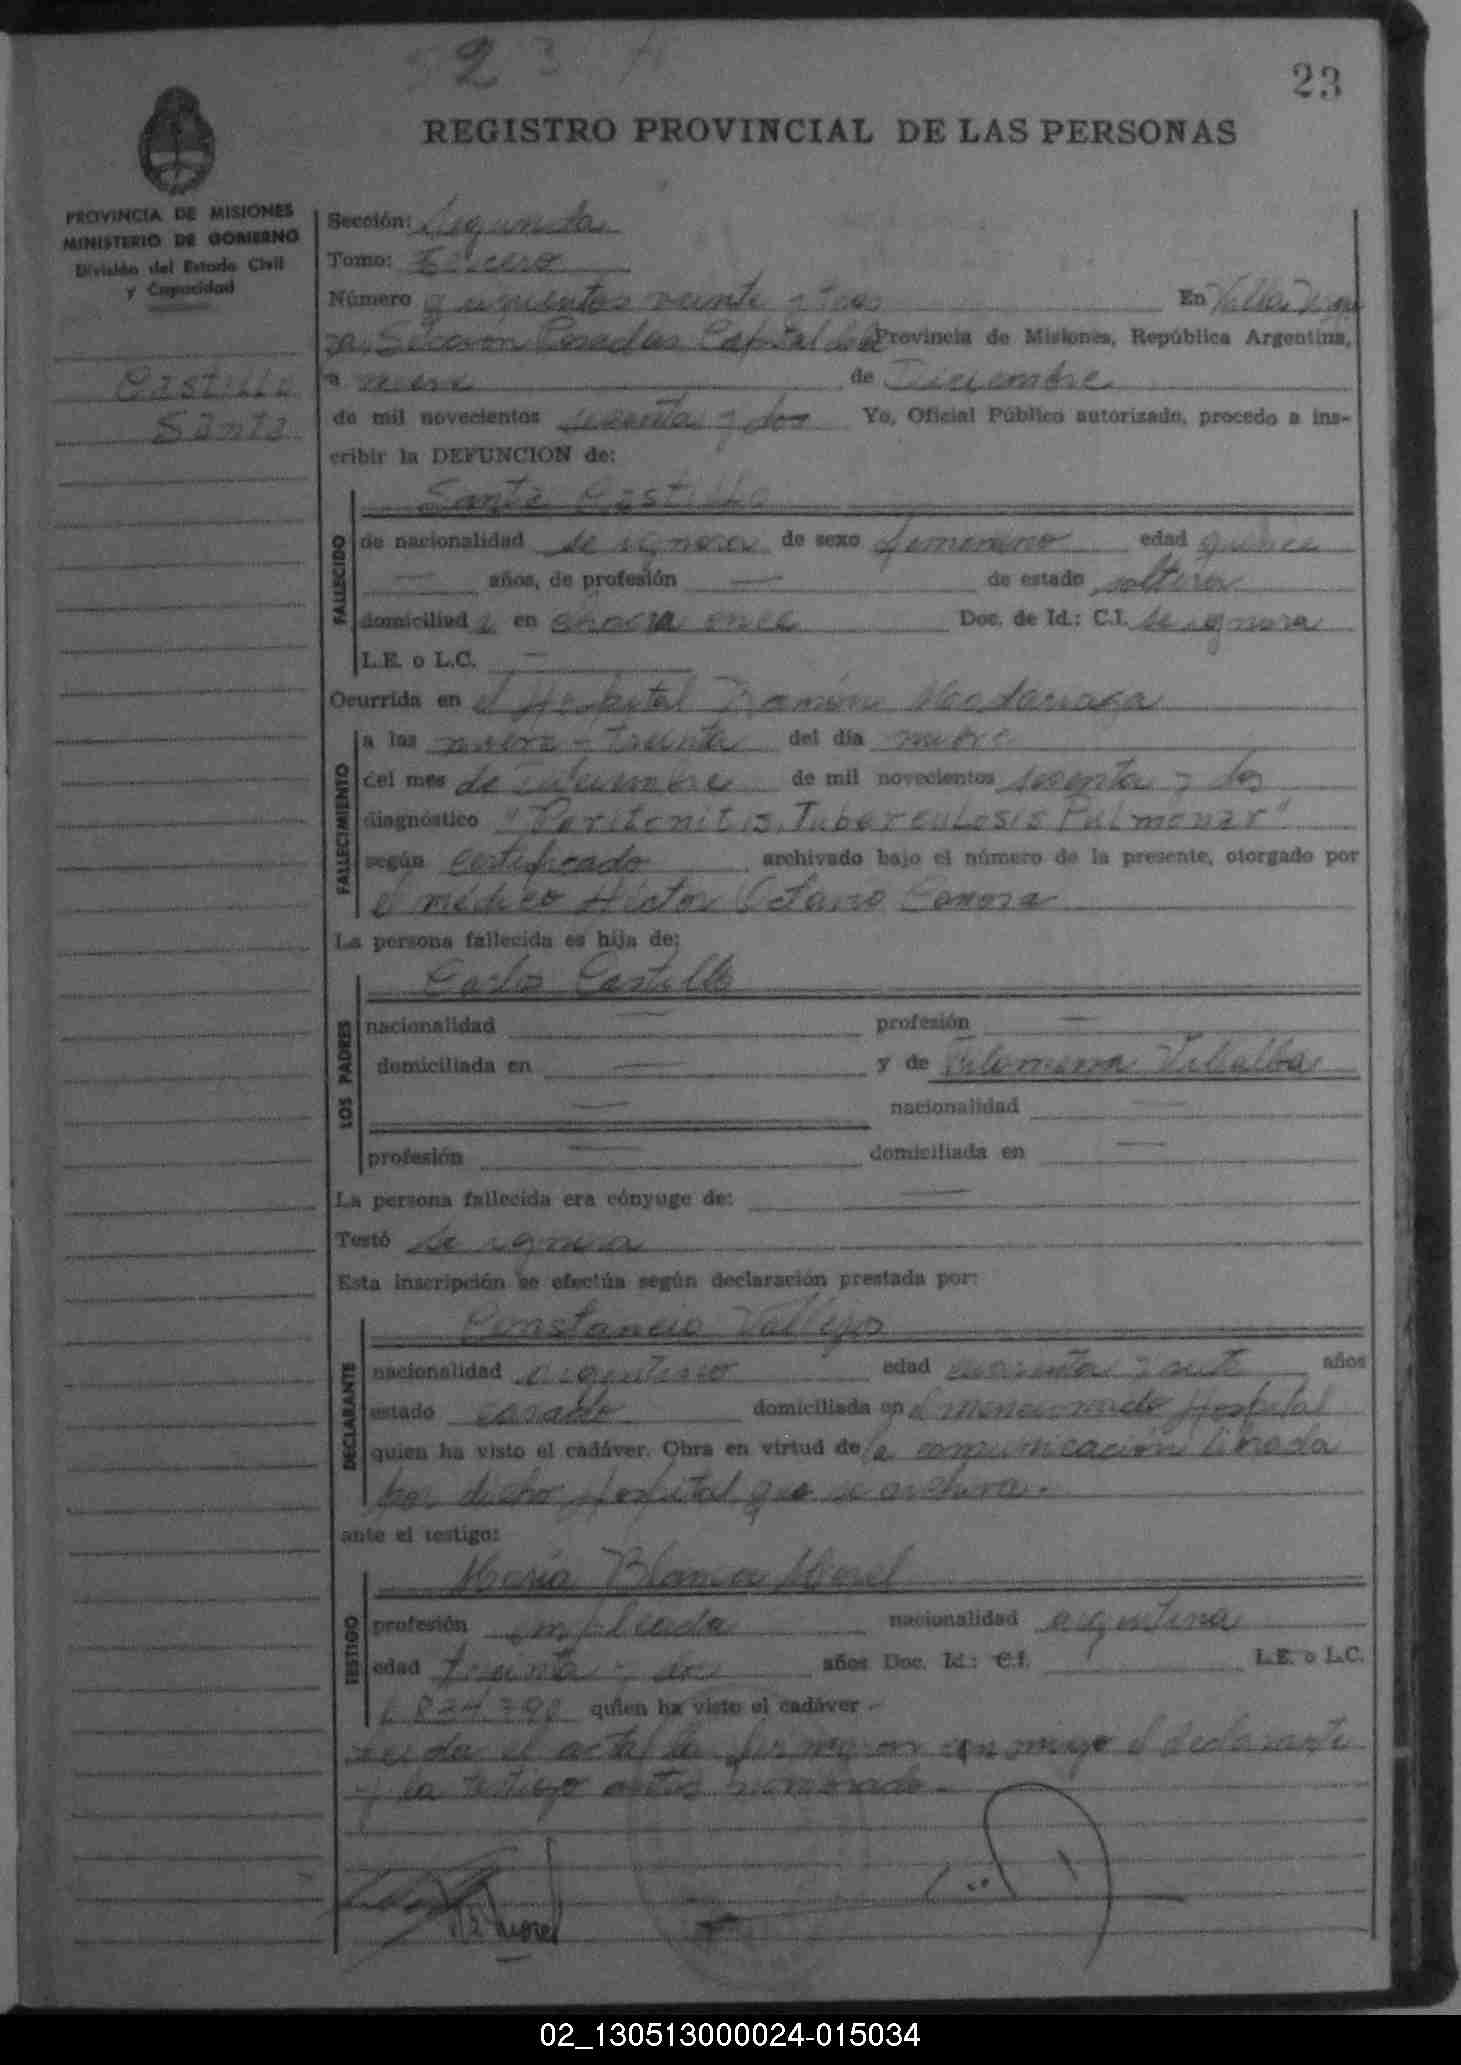 523
23
REGISTRO PROVINCIAL DE LAS PERSONAS
PROVINCIA DE MISIONES
MINISTERIO DE GOBIERNO
División del Estado Civil
y Capacidad
Castillo
Santa
Sección: Segunda
Tomo: Tercero
Número quinientos veinte y tres En Villa
Sección Posadas Capital de la Provincia de Misiones, República Argentina,
a nueve de Diciembre
de mil novecientos sesenta y dos Yo, Oficial Público autorizado, procedo a ins-
cribir la DEFUNCION de:
Santa Castillo
FALLECIDO
de nacionalidad se ignora de sexo femenino edad quince
— años, de profesión — de estado soltera
domiciliad a en chacra once Doc. de Id.: C.I. se ignora
L.E. o L.C. —
Ocurrida en el Hospital Ramón Madariaga
FALLECIMIENTO
a las nueve y treinta del día nueve
del mes de Diciembre de mil novecientos sesenta y dos
diagnóstico "Peritonitis, Tuberculosis Pulmonar"
según certificado archivado bajo el número de la presente, otorgado por
el médico Héctor Octavio
La persona fallecida es hija de:
Carlos Castillo
LOS PADRES
nacionalidad — profesión —
domiciliada en — y de Filomena Villalba
— nacionalidad —
profesión — domiciliada en —
La persona fallecida era cónyuge de: —
Testó se ignora
Esta inscripción se efectúa según declaración prestada por:
Constancio Vallejos
DECLARANTE
nacionalidad argentino edad cuarenta y años
estado casado domiciliada en el mencionado Hospital
quien ha visto el cadáver. Obra en virtud de la comunicación librada
por dicho Hospital que se archiva.
ante el testigo:
María Blanca Morel
TESTIGO
profesión empleada nacionalidad argentina
edad treinta y dos años Doc. Id.: C.I. L.E. o L.C.
quien ha visto el cadáver
el acta la firmaron conmigo el declarante
y la testigo antes nombrado.
Morel
02_130513000024-015034